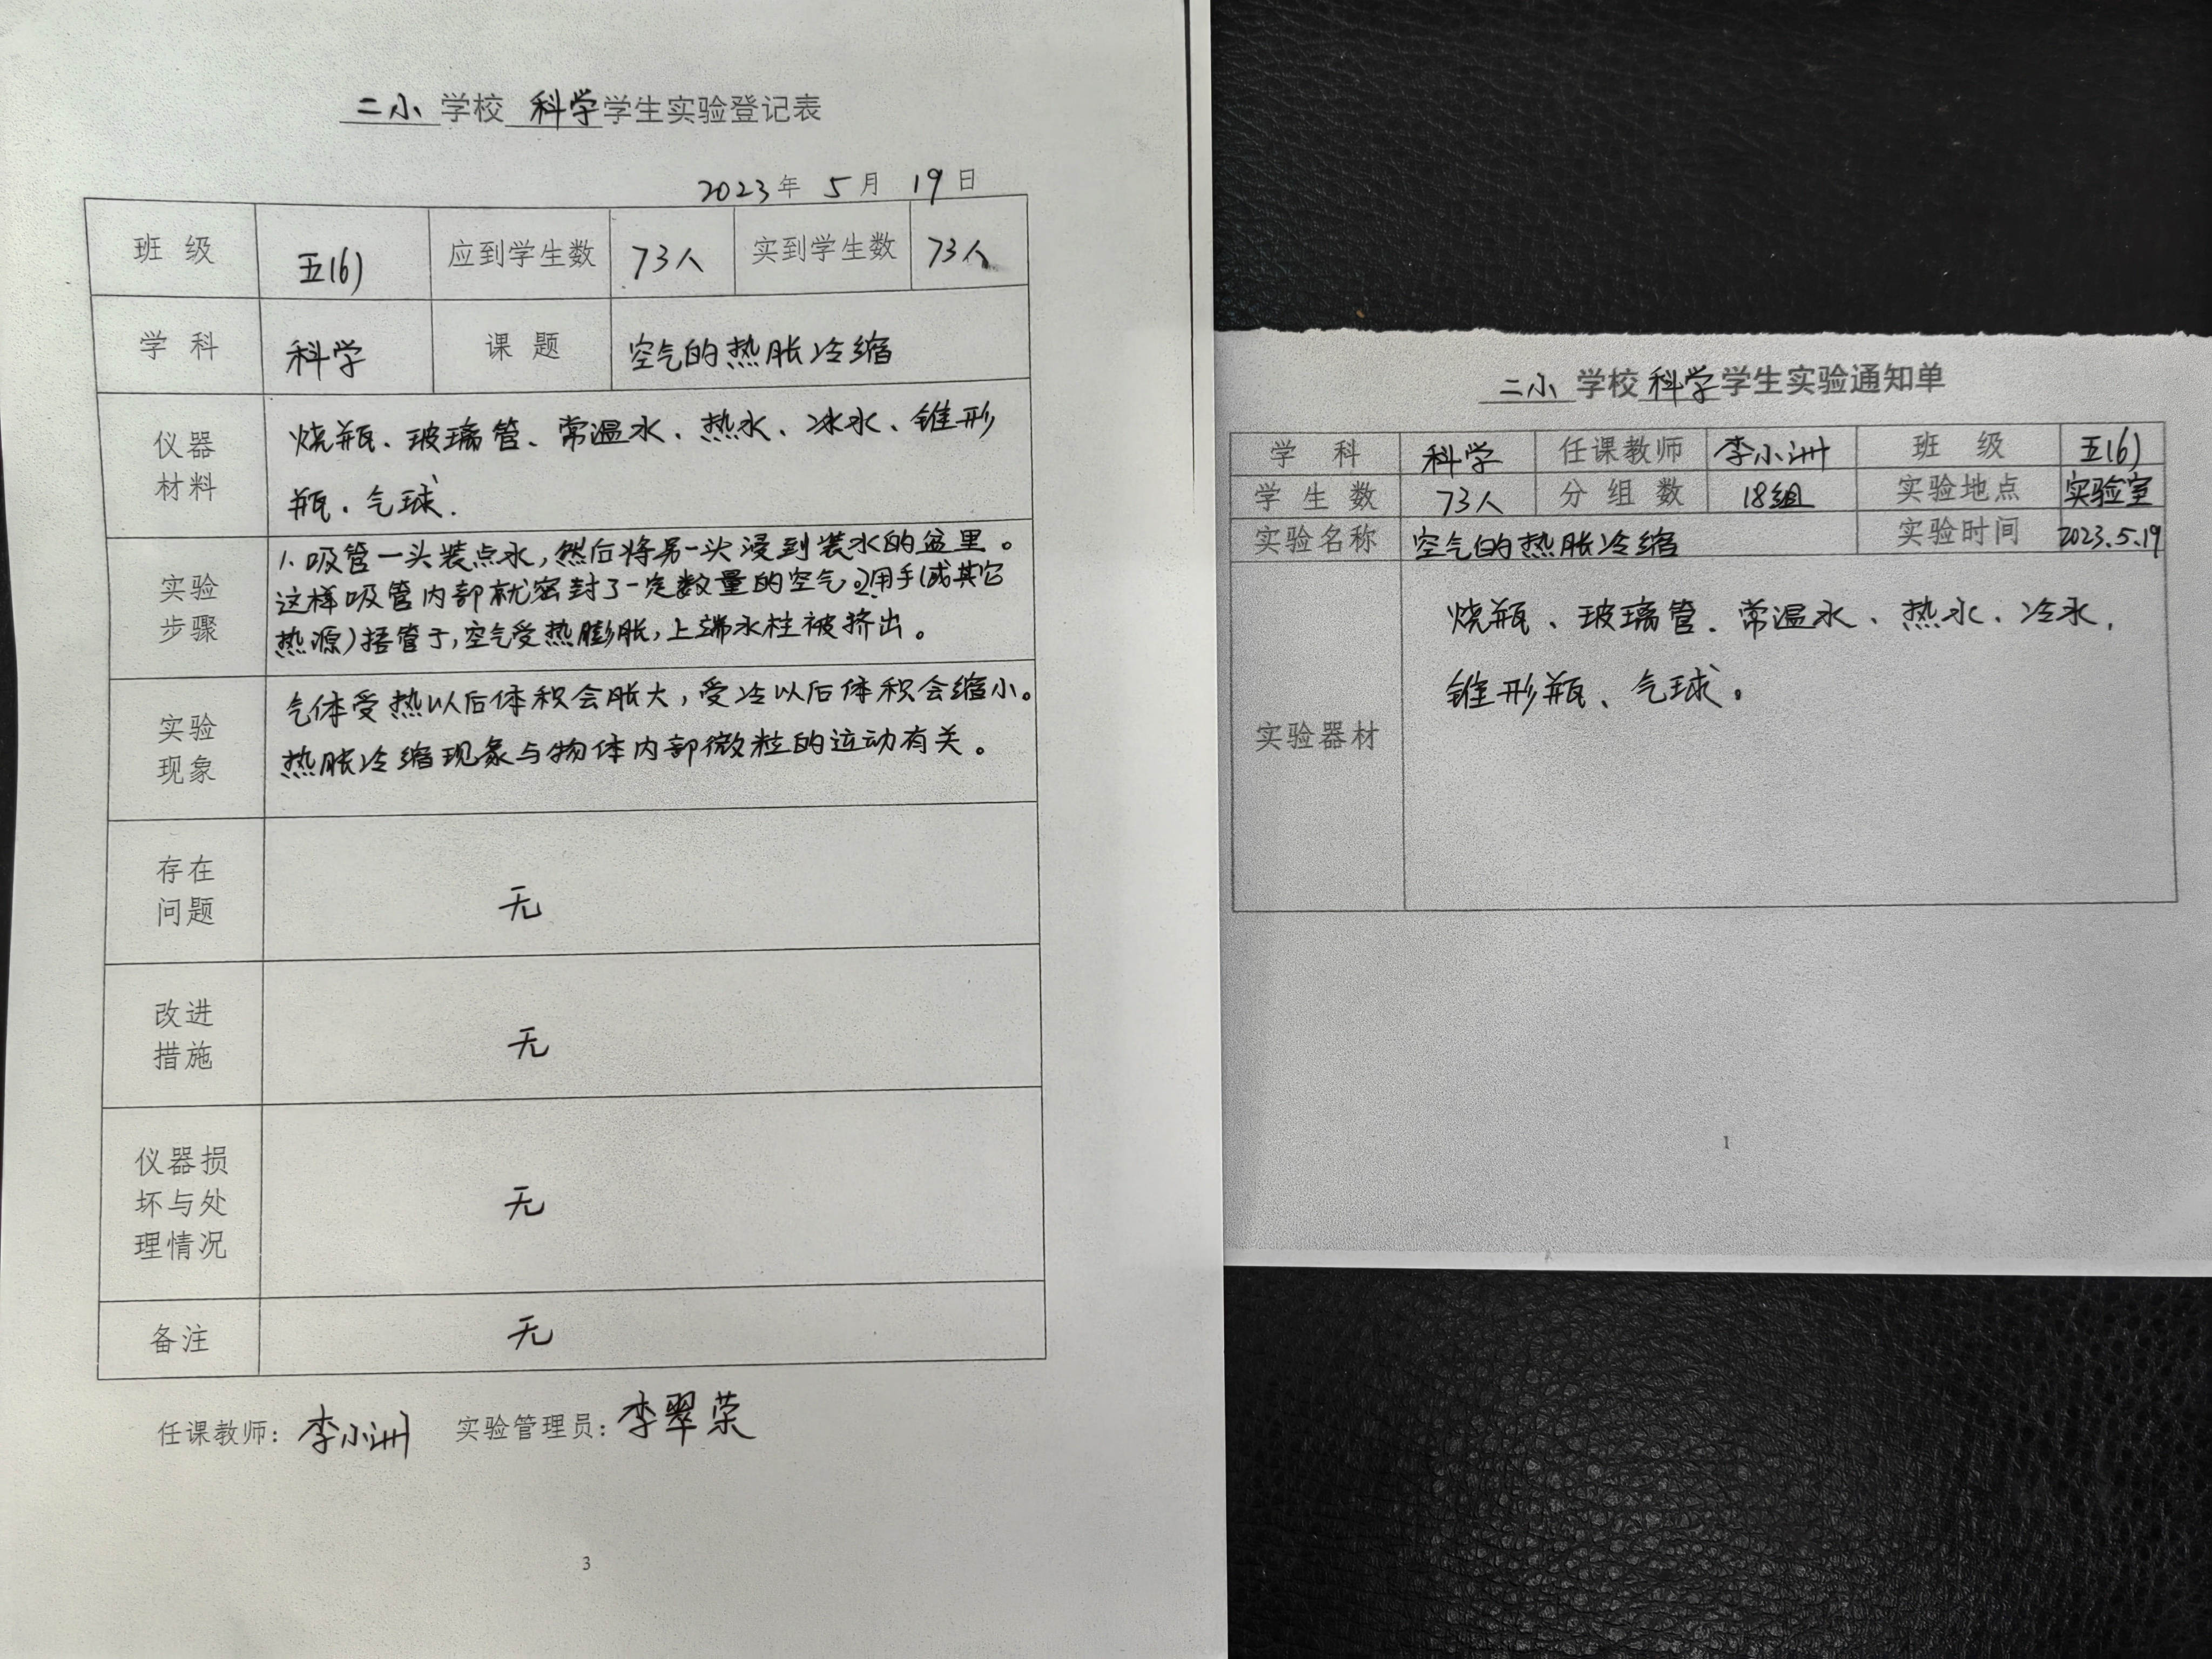 二小 学校 科学 学生实验登记表
2023年 5月 19日
班 级 五(6) 应到学生数 73人 实到学生数 73人
学 科 科学 课 题 空气的热胀冷缩
仪器
材料
烧瓶、玻璃管、常温水、热水、冰水、锥形
瓶、气球.
实验
步骤
1.吸管一头装点水,然后将另一头浸到装水的盆里。
这样吸管内部就密封了一定数量的空气。2.用手(或其它
热源)捂管子,空气受热膨胀,上端水柱被挤出。
实验
现象
气体受热以后体积会胀大,受冷以后体积会缩小。
热胀冷缩现象与物体内部微粒的运动有关。
存在
问题
无
改进
措施
无
仪器损
坏与处
理情况
无
备注 无
任课教师: 李小洲 实验管理员: 李翠荣
3
二小 学校 科学 学生实验通知单
学 科 科学 任课教师 李小洲 班 级 五(6)
学 生 数 73人 分 组 数 18组 实验地点 实验室
实验名称 空气的热胀冷缩 实验时间 2023.5.19
实验器材
烧瓶、玻璃管、常温水、热水、冷水,
锥形瓶、气球。
1